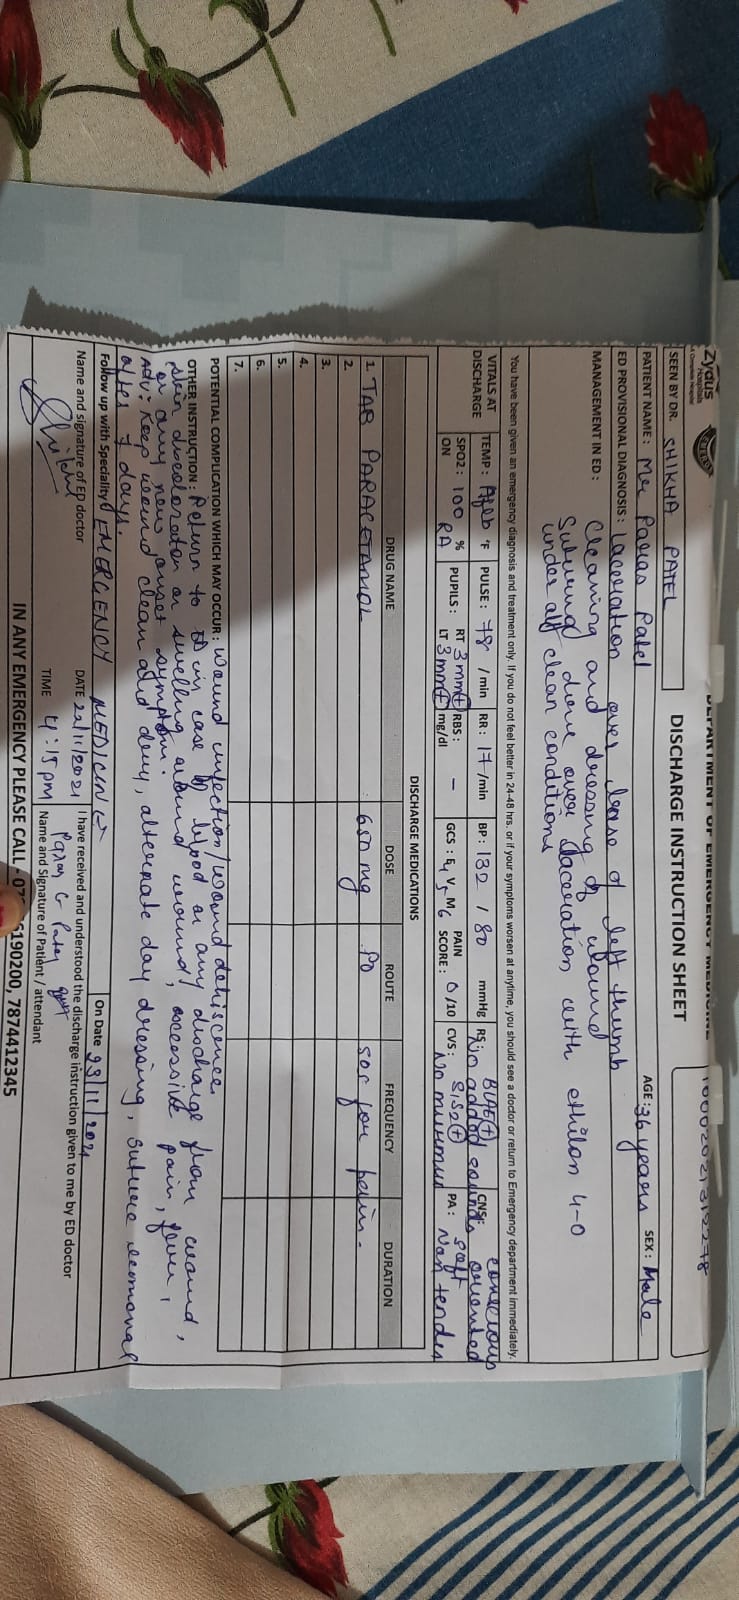 Zydus
Hospitals
DEPARTMENT OF EMERGENCY MEDICINE
DISCHARGE INSTRUCTION SHEET
SEEN BY DR. SHIKHA PATEL
PATIENT NAME : Mr. Paras Patel AGE : 36 years SEX : Male
ED PROVISIONAL DIAGNOSIS : Laceration over base of left thumb
MANAGEMENT IN ED : Cleaning and dressing of wound
Suturing done over laceration with ethilon 4-0
under all clean conditions
You have been given an emergency diagnosis and treatment only. If you do not feel better in 24-48 hrs. or if your symptoms worsen at anytime, you should see a doctor or return to Emergency department immediately.
VITALS AT DISCHARGE TEMP : Afeb °F PULSE : 78 / min RR : 17 /min BP : 132 / 80 mmHg RS : BLAE(+) No added sounds CNS : conscious oriented
SPO2 : 100 % ON RA PUPILS : RT 3mm(+) LT 3mm(+) RBS : - mg/dl GCS : E4 V5 M6 PAIN SCORE : 0 /10 CVS : S1S2(+) No murmur PA : soft Non tender
DISCHARGE MEDICATIONS
DRUG NAME DOSE ROUTE FREQUENCY DURATION
1. TAB PARACETAMOL 650 mg PO SOS for pain.
2.
3.
4.
5.
6.
7.
POTENTIAL COMPLICATION WHICH MAY OCCUR : Wound infection/ wound dehiscence
OTHER INSTRUCTION : Return to ED in case of blood or any discharge from wound,
skin discoloration or swelling around wound, excessive pain, fever,
or any new onset symptom.
Adv: Keep wound clean and dry, alternate day dressing, suture removal
after 7 days.
Follow up with Speciality EMERGENCY MEDICINE On Date
Name and signature of ED doctor DATE 22/11/2021 I have received and understood the discharge instruction given to me by ED doctor
TIME 4:15 pm Name and Signature of Patient / attendant
IN ANY EMERGENCY PLEASE CALL 6190200, 7874412345